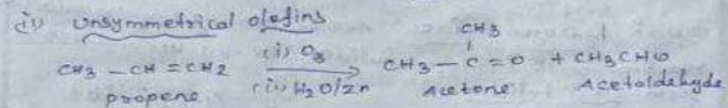 (ii) Unsymmetrical olefins
CH3 - CH = CH2 (i) O3 (ii) H2O/Zn → CH3 - C = O + CH3CHO
CH3
propene Acetone Acetaldehyde